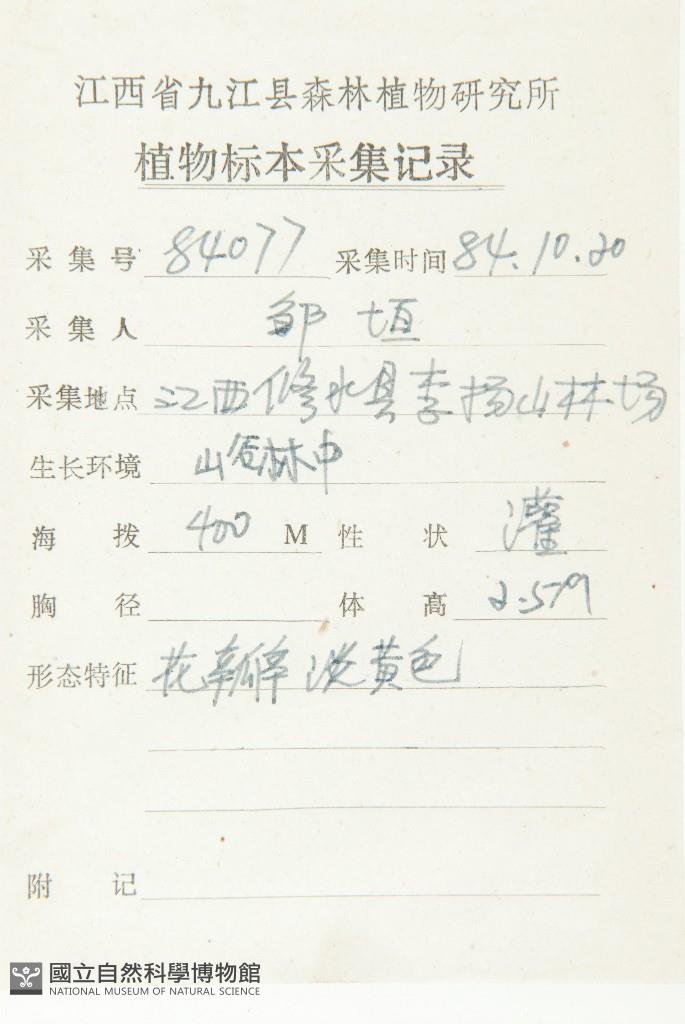 江西省九江县森林植物研究所
植物标本采集记录
采集号 84077 采集时间 84.10.20
采集人 邹垣
采集地点 江西修水县李扬山林场
生长环境 山谷林中
海拨 400 M 性状 灌
胸径 体高
形态特征 花瓣淡黄色
附记
國立自然科學博物館
NATIONAL MUSEUM OF NATURAL SCIENCE